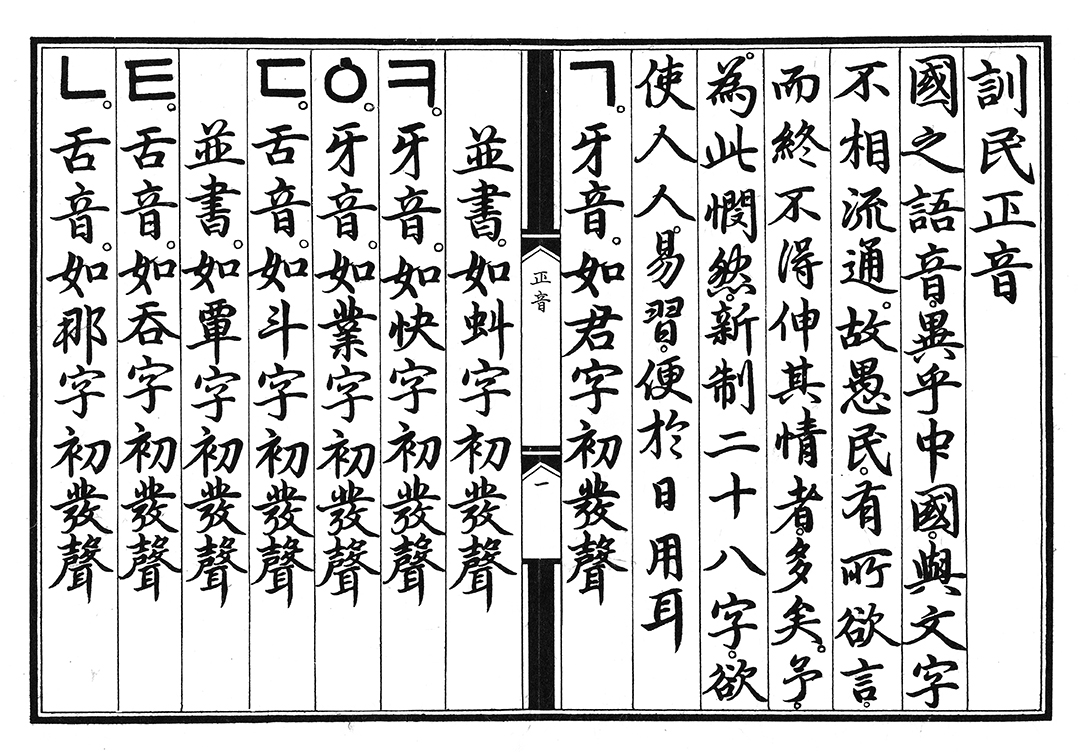 訓民正音
國之語音。異乎中國。與文字
不相流通。故愚民。有所欲言。
而終不得伸其情者。多矣。予。
為此憫然。新制二十八字。欲
使人人易習。便於日用耳
ㄱ。牙音。如君字初發聲
正音
一
並書。如虯字初發聲
ㅋ。牙音。如快字初發聲
ㆁ。牙音。如業字初發聲
ㄷ。舌音。如斗字初發聲
並書。如覃字初發聲
ㅌ。舌音。如呑字初發聲
ㄴ。舌音。如那字初發聲